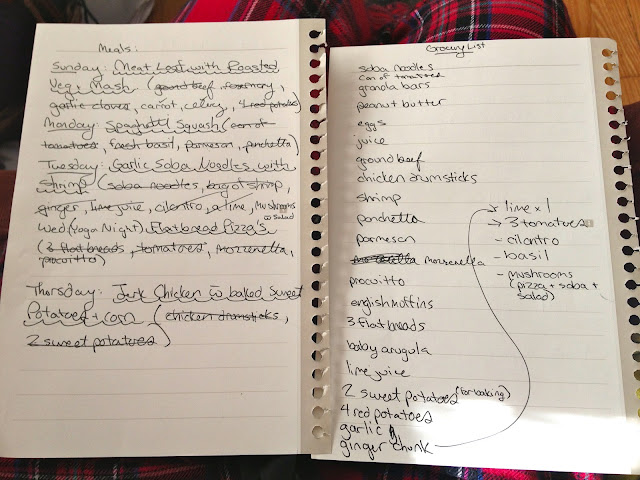 Meals:
Sunday: Meat Loaf with Roasted
Veg. Mash (ground beef, rosemary,
garlic cloves, carrot, celery, 4 red potatoes)
Monday: Spaghetti Squash (can of
tomatoes, fresh basil, parmesan, panchetta)
Tuesday: Garlic Soba Noodles with
shrimp (soba noodles, bag of shrimp,
ginger, lime juice, cilantro, a lime, mushrooms
salad
Wed (Yoga Night) Flatbread Pizza's
(3 flat breads, tomatoes, mozzerella,
procuitto)
Thursday: Jerk Chicken w baked sweet
Potatoes + corn (chicken drumsticks,
2 sweet potatoes)
Grocery List
soba noodles
can of tomatoes
granola bars
peanut butter
eggs
juice
ground beef
chicken drumsticks
shrimp
panchetta
parmesan
mozzerella
procuitto
english muffins
3 flat breads
baby arugula
lime juice
2 sweet potatoes (for baking)
4 red potatoes
garlic
ginger chunk
lime x 1
3 tomatoes
- cilantro
- basil
- mushrooms
(pizza + soba +
salad)